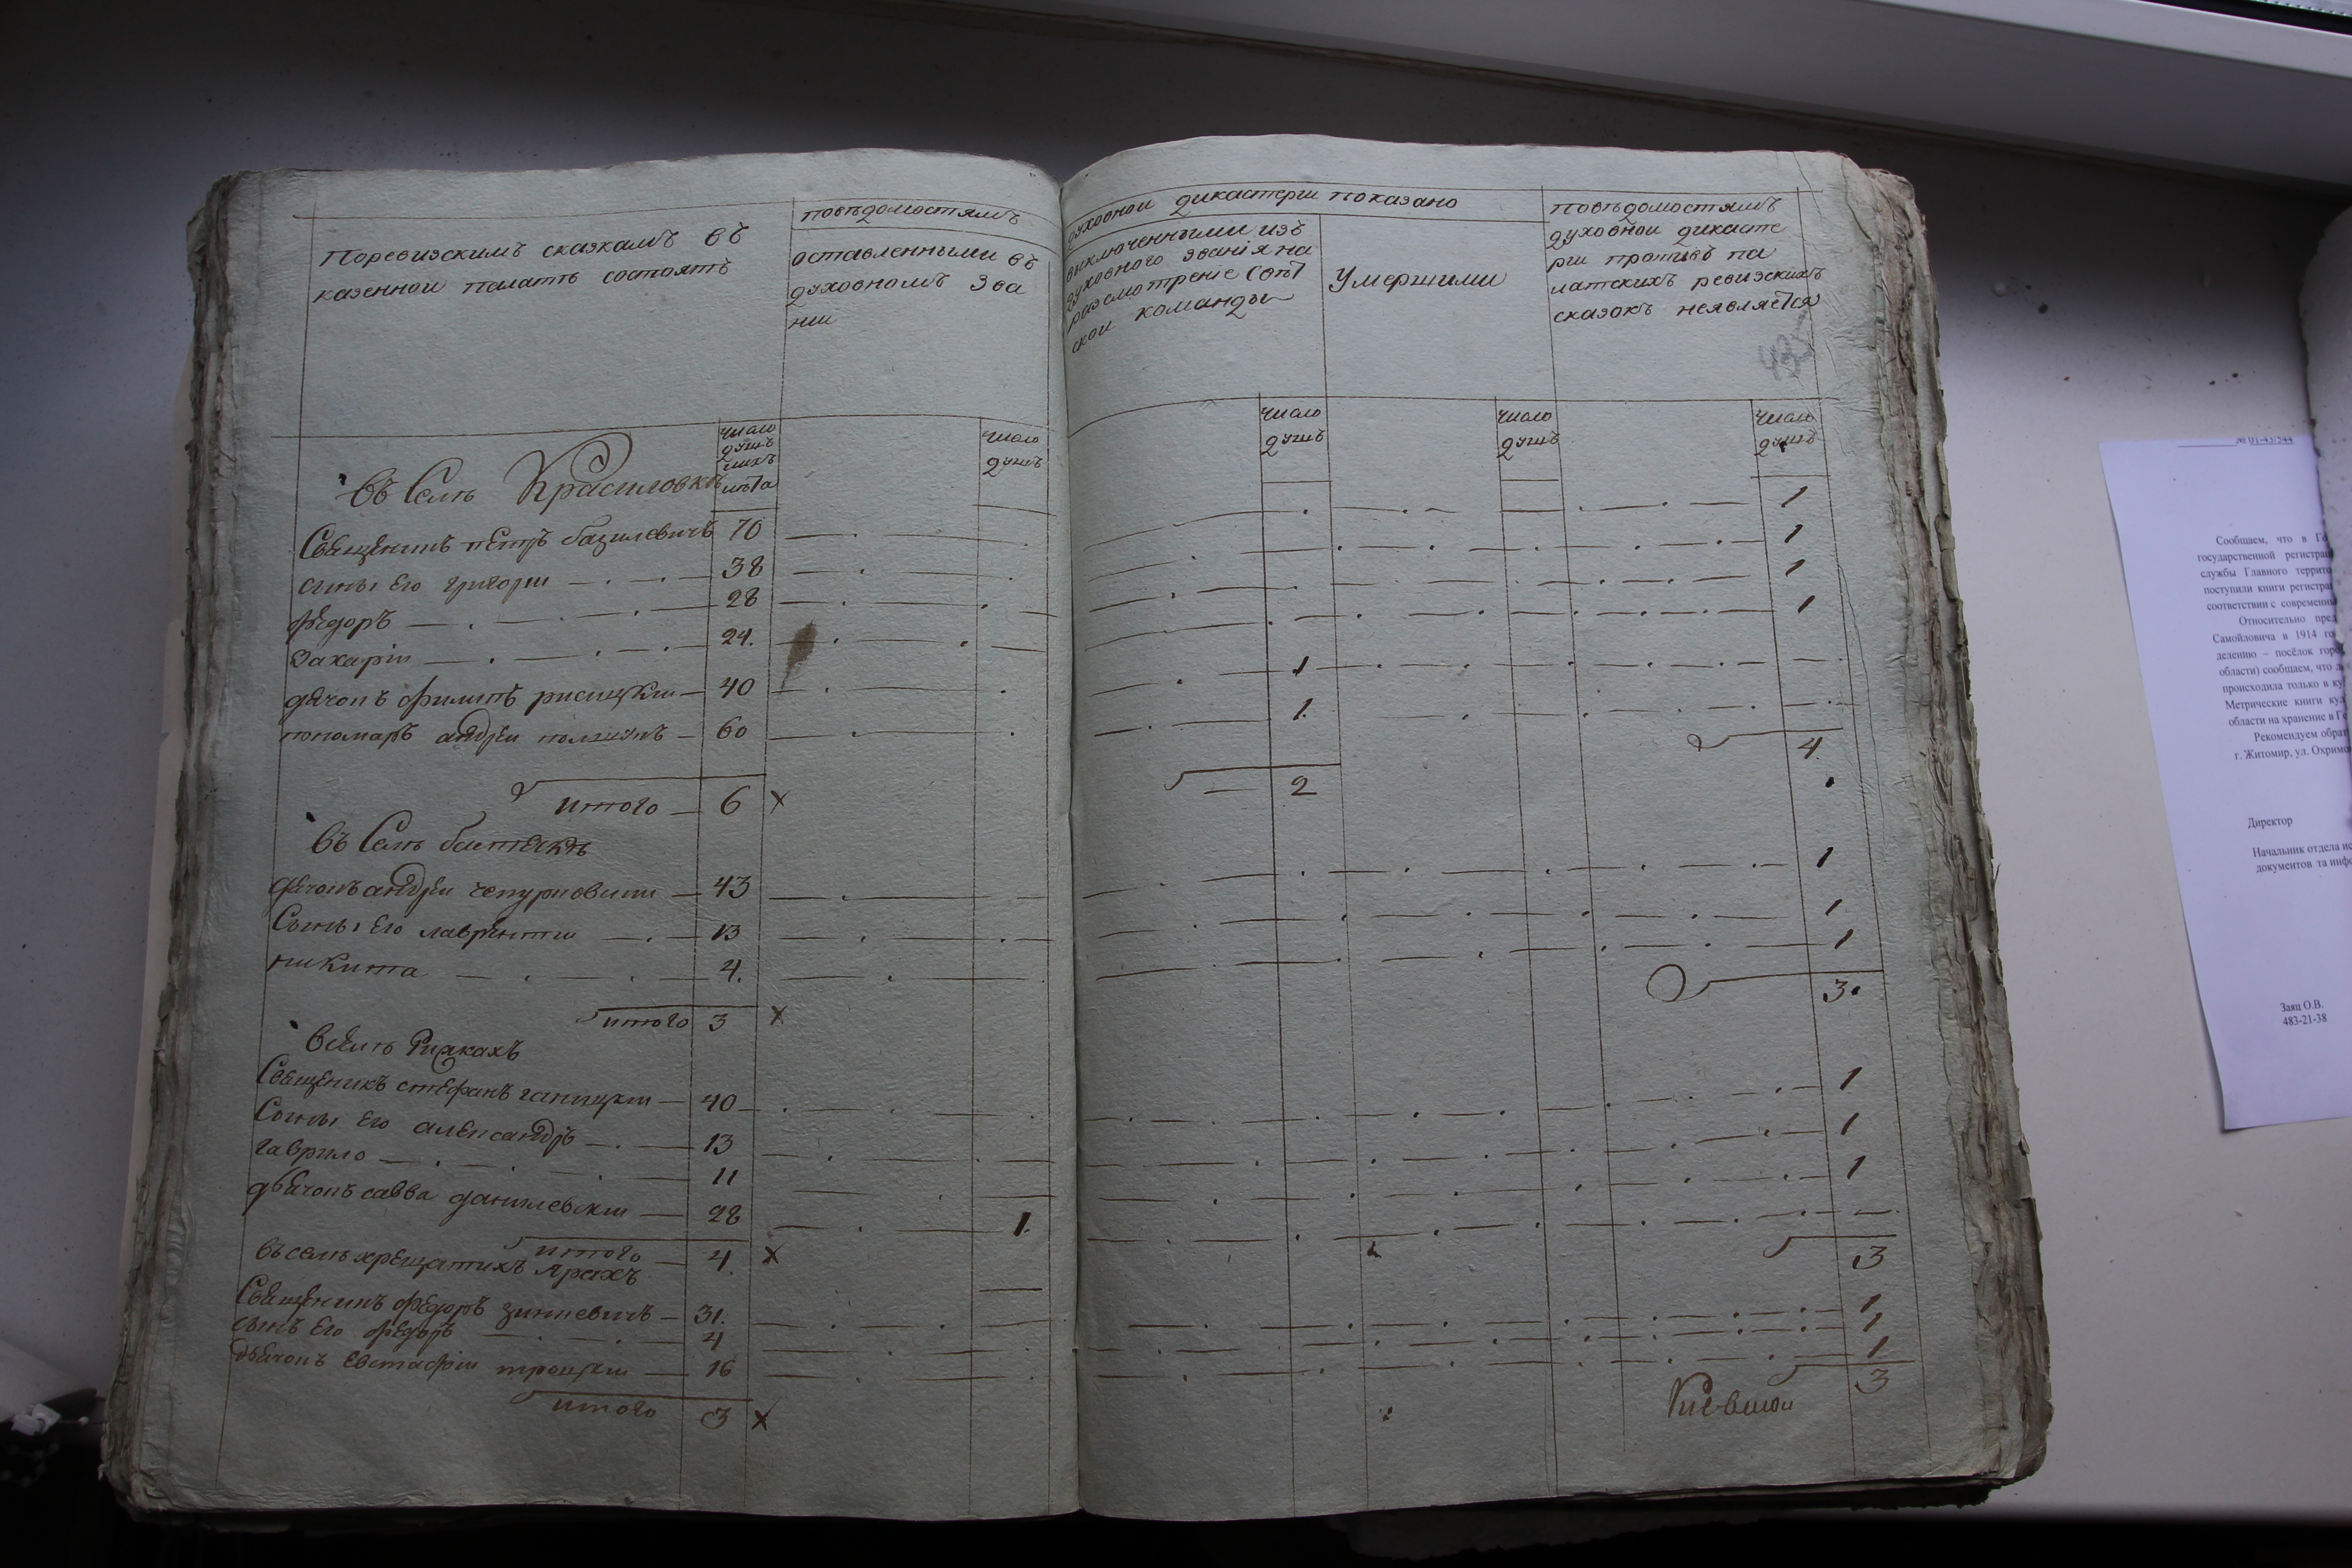 Поревизскимъ сказкамъ въ
казенной палатѣ состоятъ
повѣдомостямъ
оставленными въ
духовномъ Зва
нии
духовной дикастерии показано
выключенными изъ
духовного званія на
разсмотреніе свѣт
ской команды
Умершими
повѣдомостямъ
духовной дикасте
рии противъ па
латскихъ ревизскихъ
сказокъ неявляется
число
душъ
ихъ
лѣта
число
душъ
число
душъ
число
душъ
число
душъ
Въ Селѣ Красиловкѣ
Священикъ петръ базилевичъ 70 1
сыны Его григори 38 1
федоръ 28 1
Захарій 24. 1
дячокъ филипъ 40 1
пономарь андрей 60 1.
4.
итого 6 x 2
Въ Селѣ
дячокъ андрей 43 1
Сыны Его лаврентий 13 1
никита 4. 1
3.
итого 3 x
Всѣлѣ Рудкахъ
Священикъ стефанъ 40 1
Сыны Его александръ 13 1
гаврило 11 1
дьячокъ савва данилевский 28 1.
итого 4. x 3
въселѣ хрещатихъ Ярахъ
Священикъ федоръ зинкевичъ 31. 1
сынъ Его федоръ 4 1
дьячокъ Евстафий троицкий 16 1
3
итого 3 x
Киевской
№ 01-43/344
Сообщаем, что в Го
государственной регистрац
службы Главного террито
поступили книги регистра
соответствии с современны
Относительно пред
Самойловича в 1914 го
делению – посёлок горо
области) сообщаем, что д
происходила только в ку
Метрические книги ку
области на хранение в Го
Рекомендуем обрат
г. Житомир, ул. Охримо
Директор
Начальник отдела ис
документов та инфо
Заяц О.В.
483-21-38